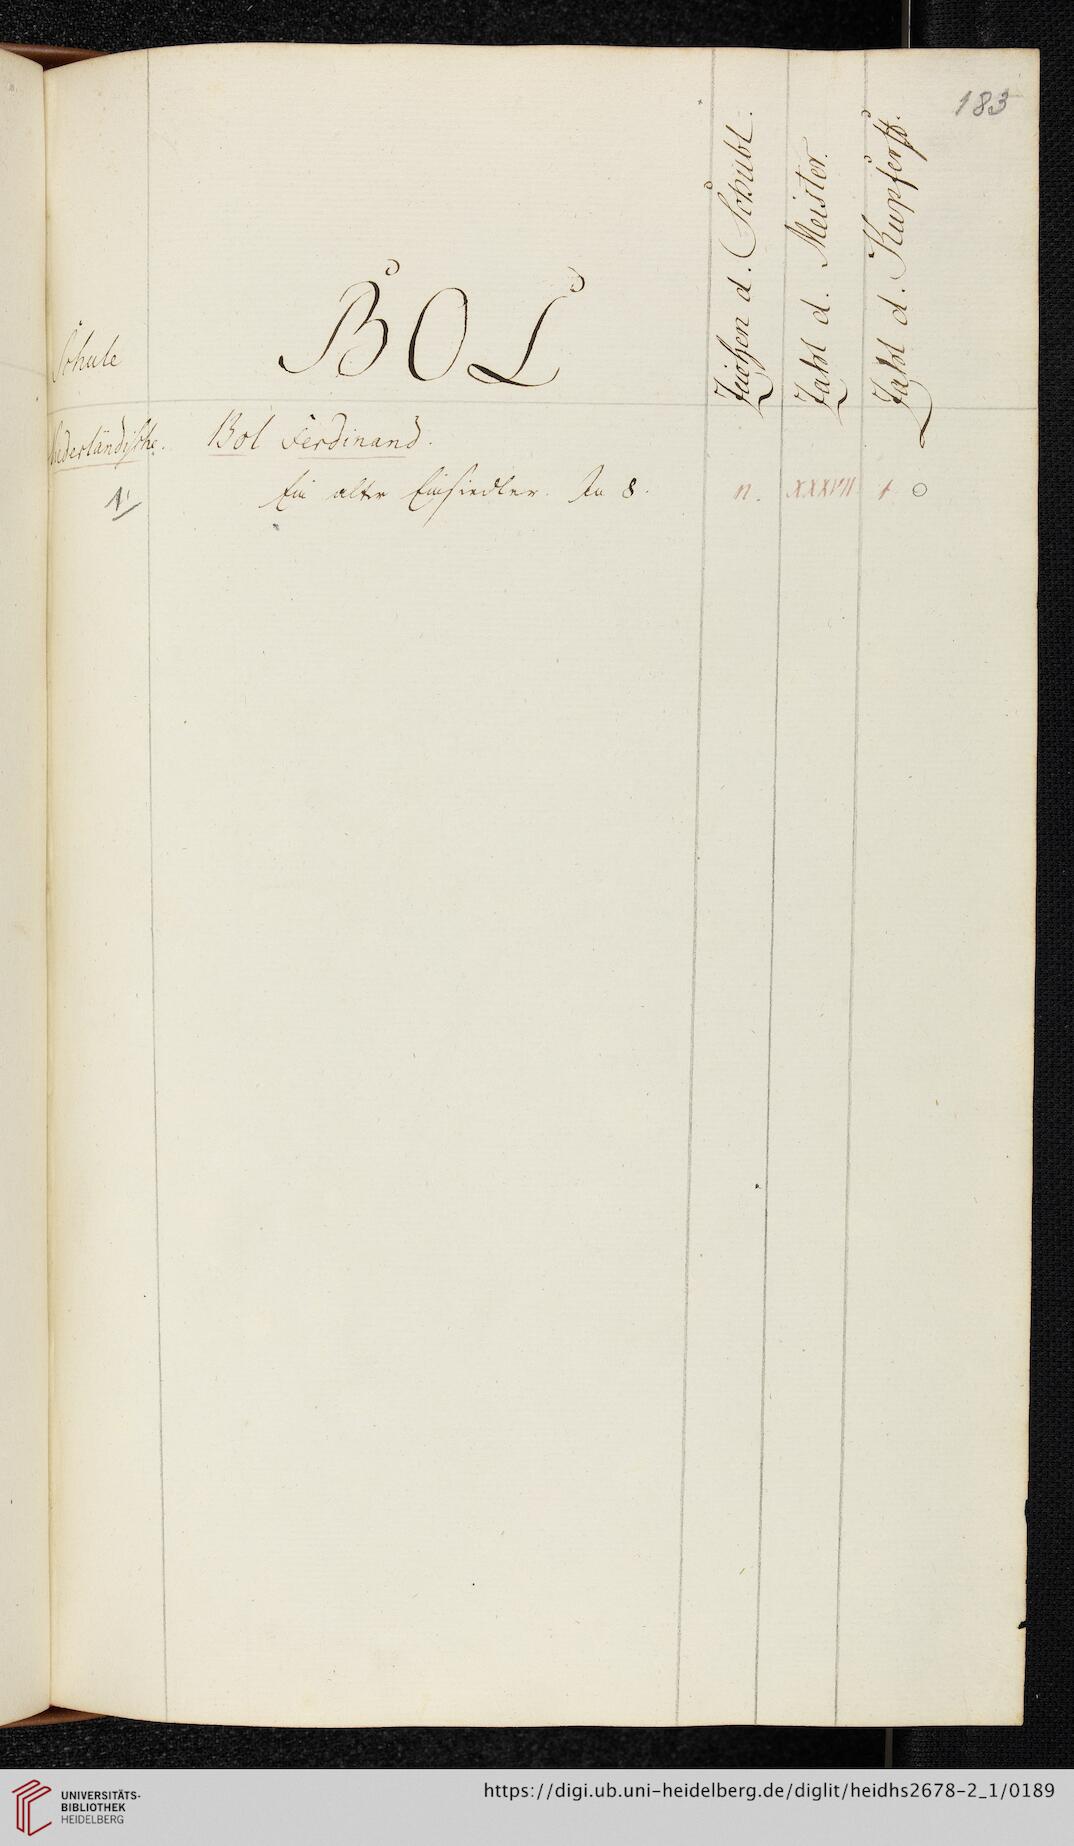 183
Zeichen d. Schubl.
Zahl d. Meister.
Zahl d. Kupferst.
Schule
BOL
Niederländische.
Bol Ferdinand.
Ein alter Einsiedler. In 8. n. XXXVII 1
UNIVERSITÄTS-
BIBLIOTHEK
HEIDELBERG
https://digi.ub.uni-heidelberg.de/diglit/heidhs2678-2_1/0189